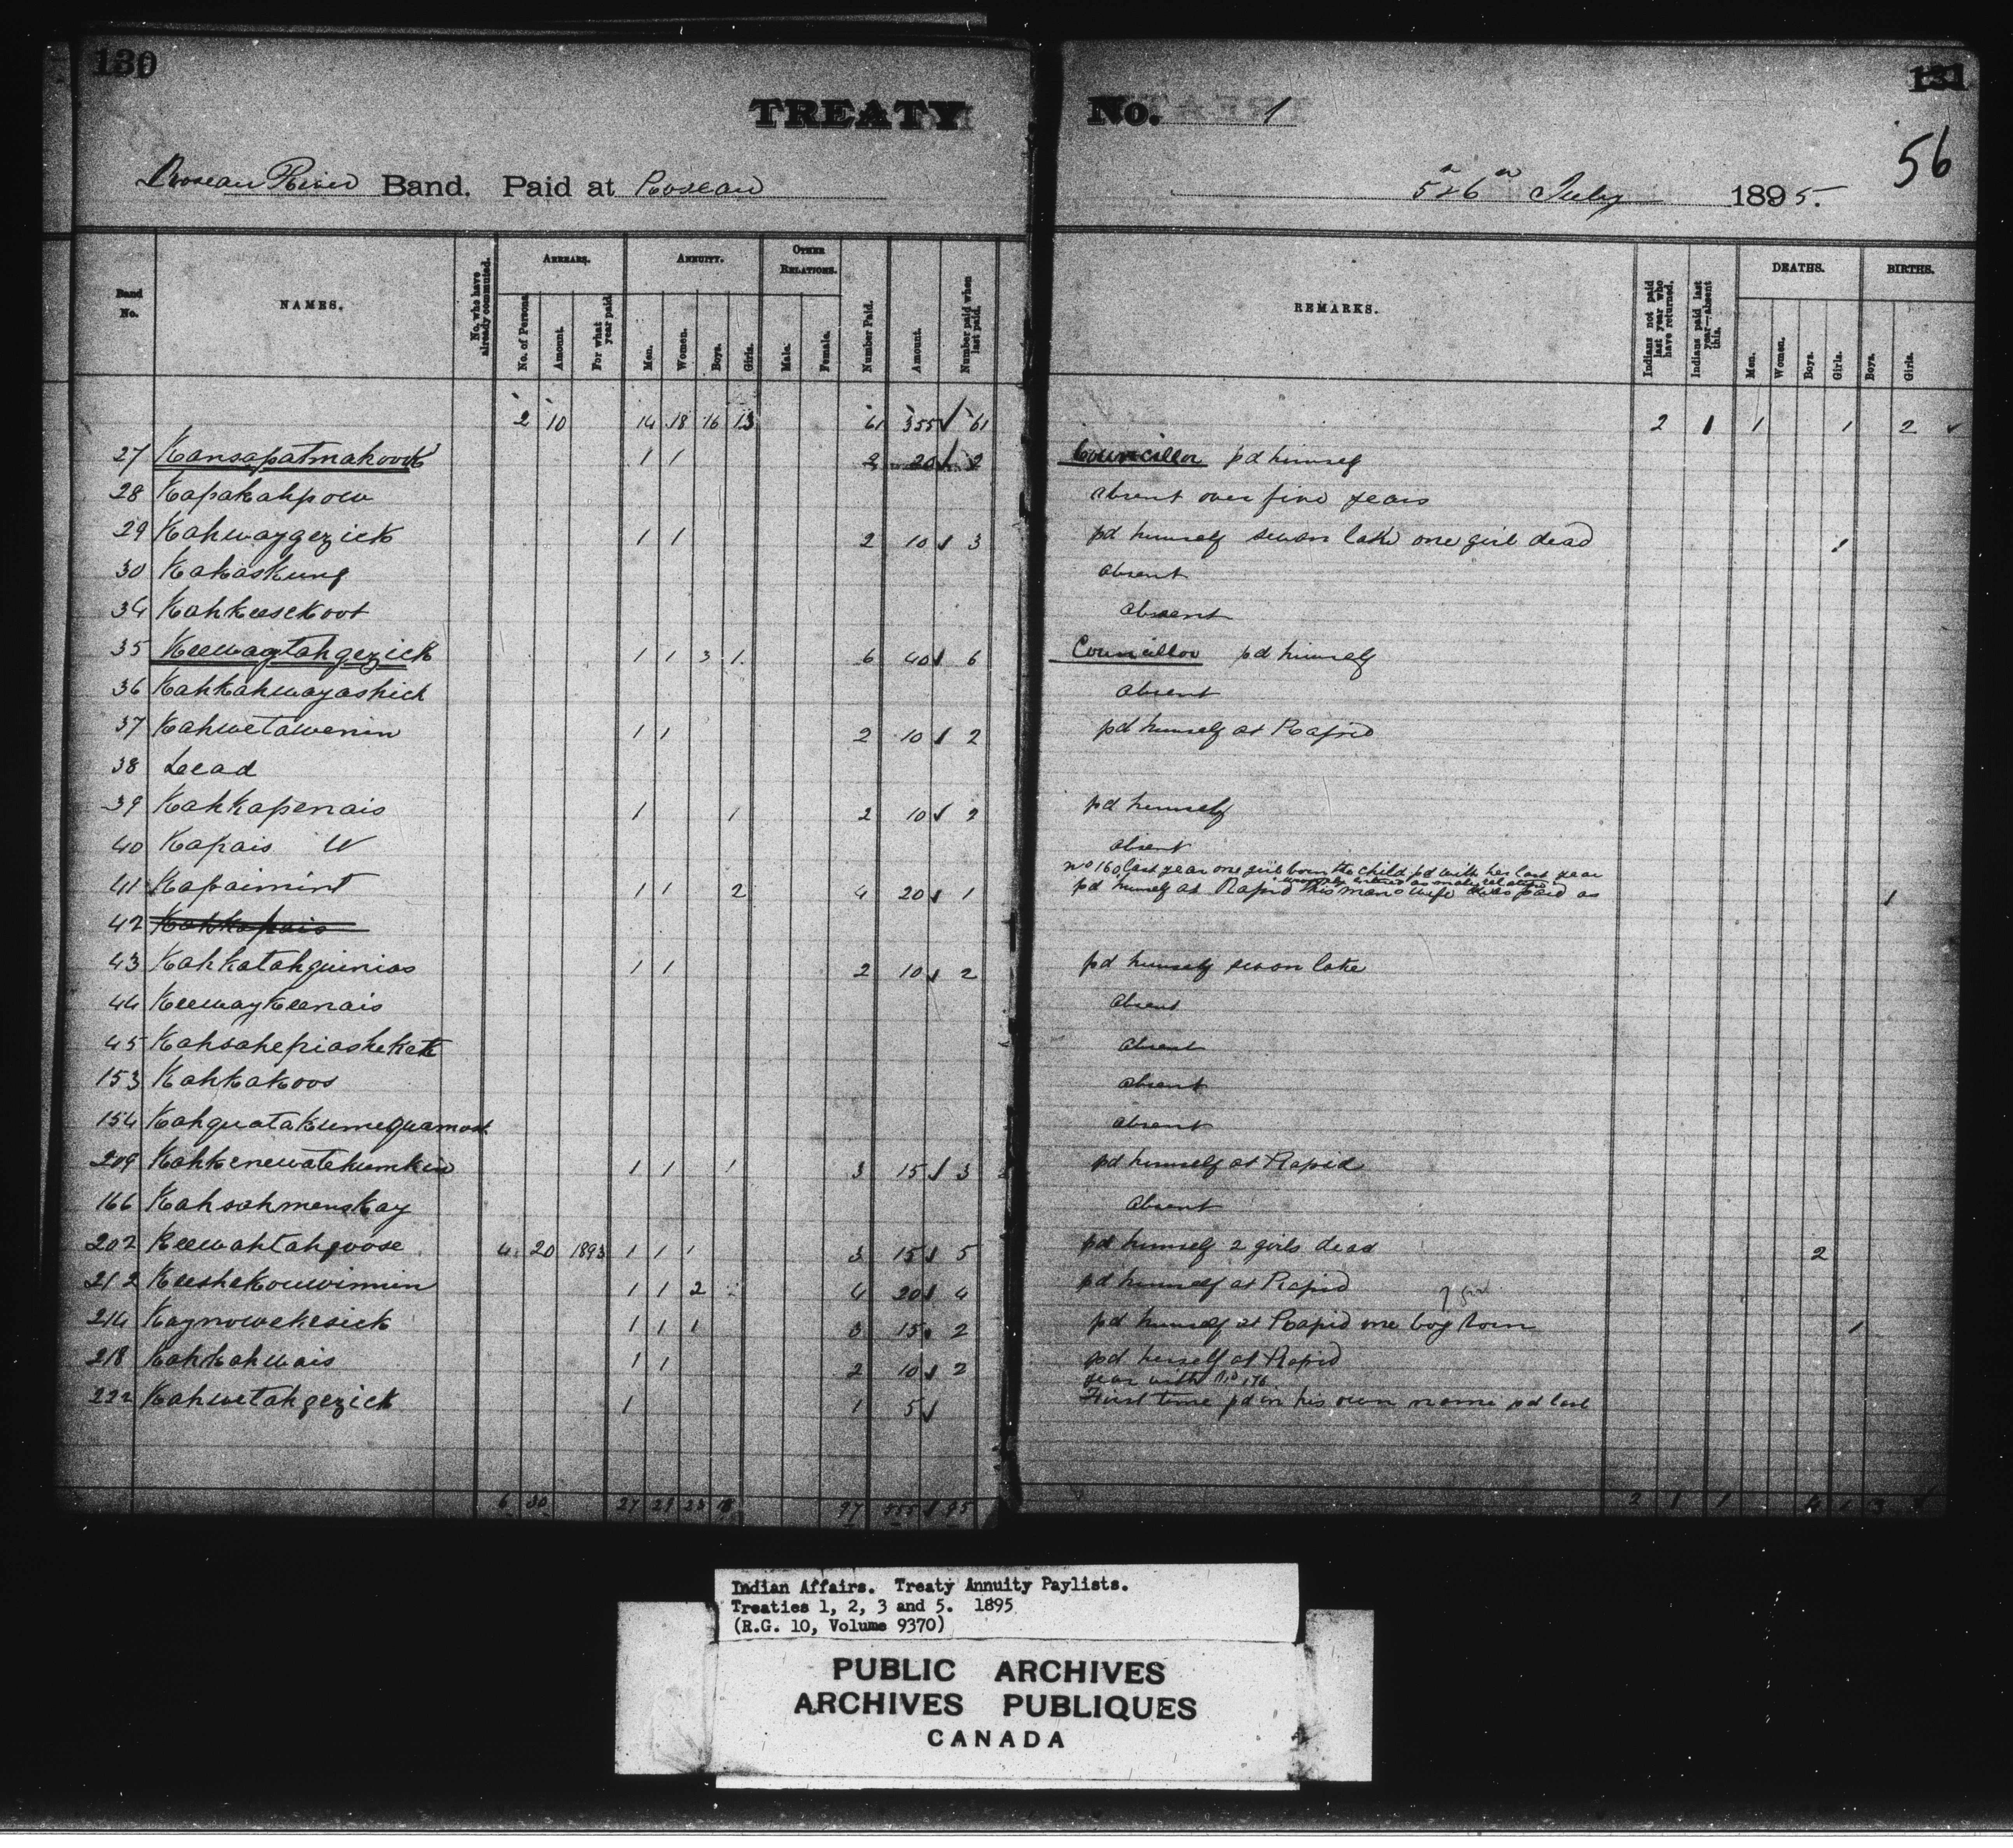 130
TREATY
Roseau River Band. Paid at Roseau
Band No.
NAMES.
No. who have already commuted.
ARREARS.
No. of Persons.
Amount.
For what year paid.
ANNUITY.
Men.
Women.
Boys.
Girls.
OTHER RELATIONS.
Male.
Female.
Number Paid.
Amount.
Number paid when last paid.
2 10 14 18 16 13 61 355 61
27 Kansapatmakoork 1 1 2 20 2
28 Kapakahpow
29 Kahwaygezick 1 1 2 10 3
30 Kakaskung
34 Kahkeesekoot
35 Keewaytahgezick 1 1 3 1 6 40 6
36 Kahkahwayashick
37 Kahwetawenin 1 1 2 10 2
38 Dead
39 Kahkapenais 1 1 2 10 2
40 Kapais W
41 Kapaimint 1 1 2 4 20 1
42 Kahkapais
43 Kahkatahguinias 1 1 2 10 2
44 Keewaykeenais
45 Kahsahepiashekah
153 Kahkakoos
154 Kahguatakumequamoot
209 Kahkenewatehumkin 1 1 1 3 15 3
166 Kahsahmenskay
202 Keewahtahgoose 4 20 1893 1 1 1 3 15 5
212 Keeshekouwinnin 1 1 2 4 20 4
214 Kaynowekesick 1 1 1 3 15 2
218 Kahkahwais 1 1 2 10 2
222 Kahwetahgezick 1 1 5
6 30 27 29 23 18 97 555 95
131
No. 1
56
5 & 6 July 1895.
REMARKS.
Indians not paid last year who have returned.
Indians paid last year—absent this.
DEATHS.
Men.
Women.
Boys.
Girls.
BIRTHS.
Boys.
Girls.
2 1 1 1 2
Councillor pd himself
absent over five years
pd himself swan lake one girl dead 1
absent
absent
Councillor pd himself
absent
pd himself at Rapid
pd himself
absent
no 160 last year one girl born the child pd with her last year
wrongly entered as male relation
pd himself at Rapid this mans wife was paid as 1
pd himself swan lake
absent
absent
absent
absent
pd himself at Rapid
absent
pd himself 2 girls dead 2
pd himself at Rapid
? girl
pd himself at Rapid one boy born 1
pd herself at Rapid
year with No 176
First time pd in his own name pd last
2 1 1 4 1 3
Indian Affairs. Treaty Annuity Paylists.
Treaties 1, 2, 3 and 5. 1895
(R.G. 10, Volume 9370)
PUBLIC ARCHIVES
ARCHIVES PUBLIQUES
CANADA